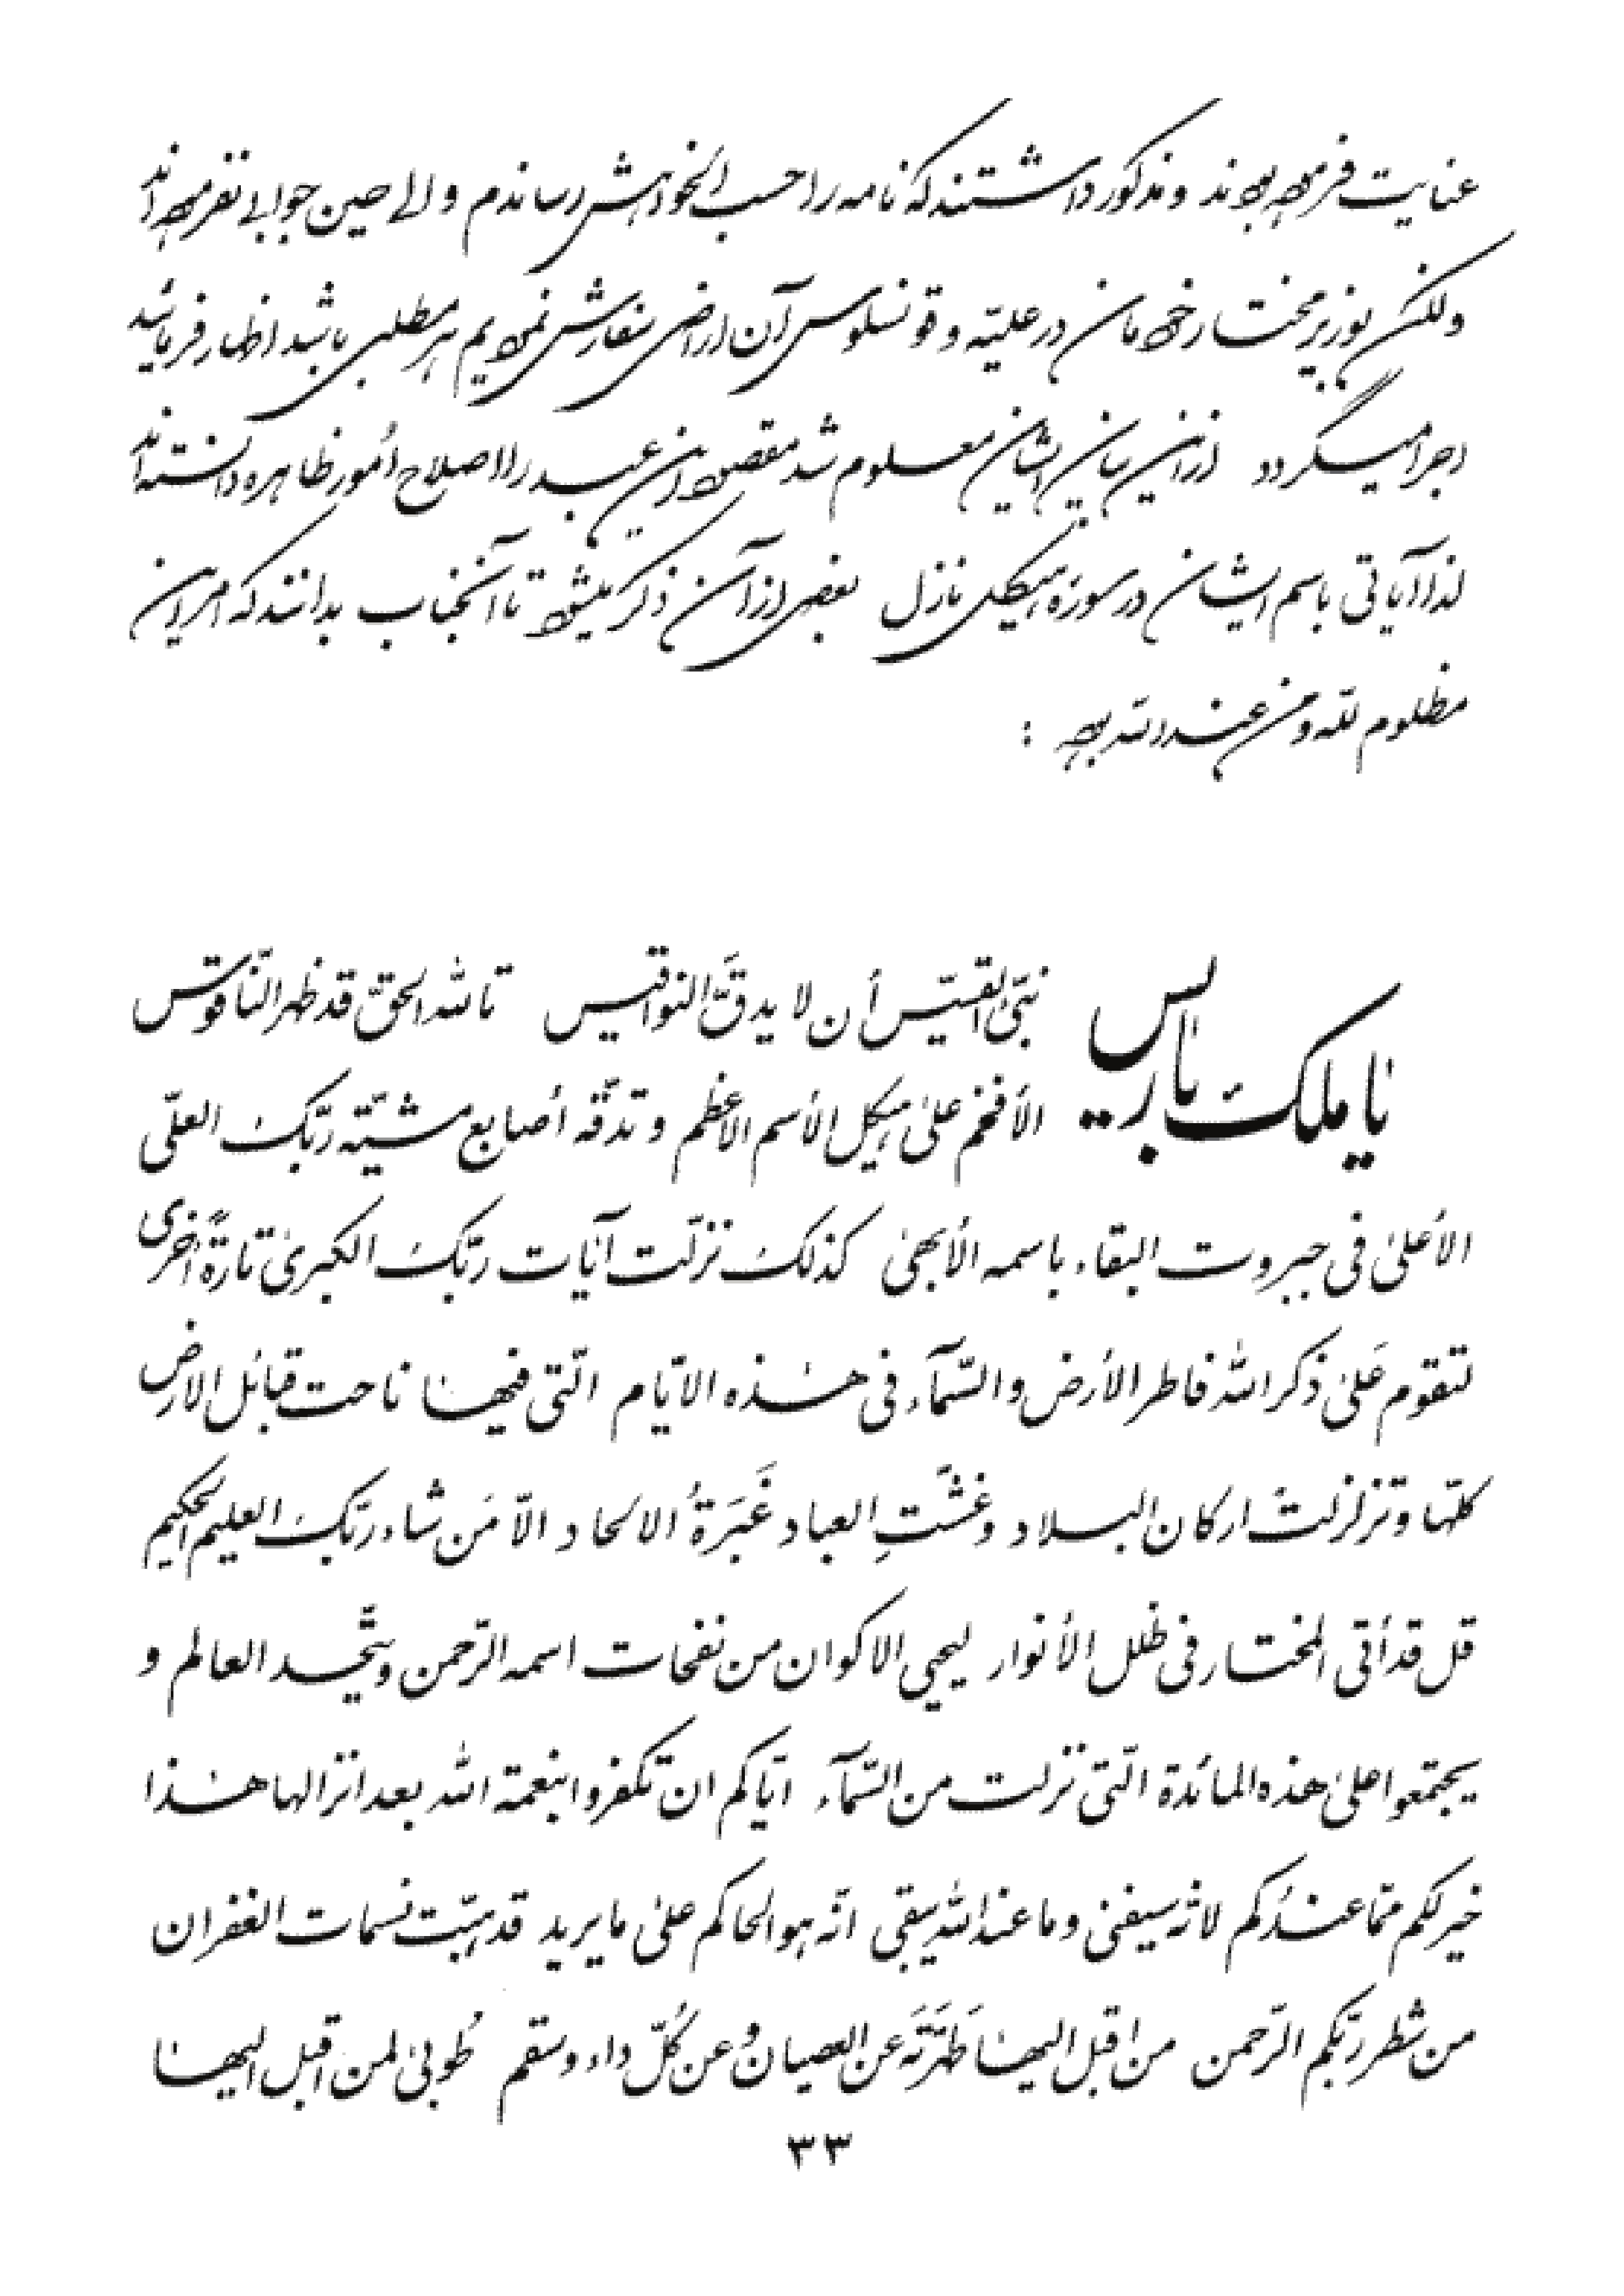 عنایت فرموده بودند و مذکور داشتند که نامه را حسب الخواهش رساندم و الی حین جوابی نفرموده‌اند
ولکن بوزیر مختار خودمان در علیّه و قونسلوس آن اراضی سفارش نمودیم هر مطلبی باشد اظهار فرمائید
اجرا میگردد از این بیان ایشان معلوم شد مقصود این عبد را اصلاح اُمور ظاهره دانسته‌اند
لذا آیاتی باسم ایشان در سورهٔ هیکل نازل بعضی از آن ذکر میشود تا آنجناب بدانند که امر این
مظلوم للّه و من عند اللّه بوده :
یا ملک پاریس
نبّئ القسّیس أن لا یدقّ النواقیس تاللّه الحقّ قد ظهر النّاقوس
الأفخم علی هیکل الأسم الأعظم و تدقّه أصابع مشیّة ربّک العلّی
الأعلیٰ فی جبروت البقاء باسمه الأبهیٰ کذلک نزّلت آیات ربّک الکبریٰ تارةً اُخریٰ
لتقوم عَلیٰ ذکر اللّه فاطر الأرض و السّمآء فی هذه الایّام الّتی فیها ناحت قبائل الارض
کلّها و تزلزلت ارکان البلاد و غشّتِ العباد غَبَرَةُ الالحاد الّا مَن شاء ربّک العلیم الحکیم
قل قد أتی المختار فی ظُلل الأنوار لیحیی الاکوان من نفحات اسمه الرّحمن و یتّحد العالم و
یجتمعوا علیٰ هذه المائدة الّتی نزلت من السّمآء ایّاکم ان تکفروا بنعمة اللّه بعد انزالها هذا
خیر لکم ممّا عندکم لأنه سیفنی و ما عند اللّه یبقی انّه هو الحاکم علیٰ ما یرید قد هبّت نسمات الغفران
من شطر ربّکم الرّحمن من اقبل الیها طَهَّرَتهُ عن العصیان و عن کُلّ داء و سقم طُوبیٰ لمن اقبل الیها
٣٣